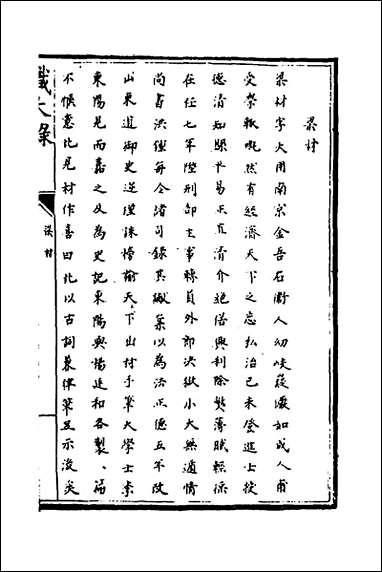 梁材
梁材字大用南京金吾右衛人幼岐嶷儼如成人甫
受學輒嘅然有經濟天下之志弘治己未登進士授
德清知縣平易正直清介絕俗興利除弊薄賦輕徭
在任七年陞刑部主事轉員外郎決獄小大無遁情
尚書洪鍾每令諸司錄其讞案以為法正德五年改
山東道御史逆瑾誅榜諭天下出材手筆大學士李
東陽見而嘉之及為史記東陽與楊廷和各製一篇
不愜意比見材作喜曰此以古詞兼律筆足示後矣
獻大錄
梁材